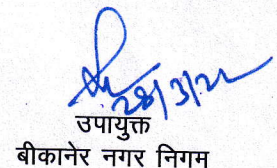 28/3/22
उपायुक्त
बीकानेर नगर निगम